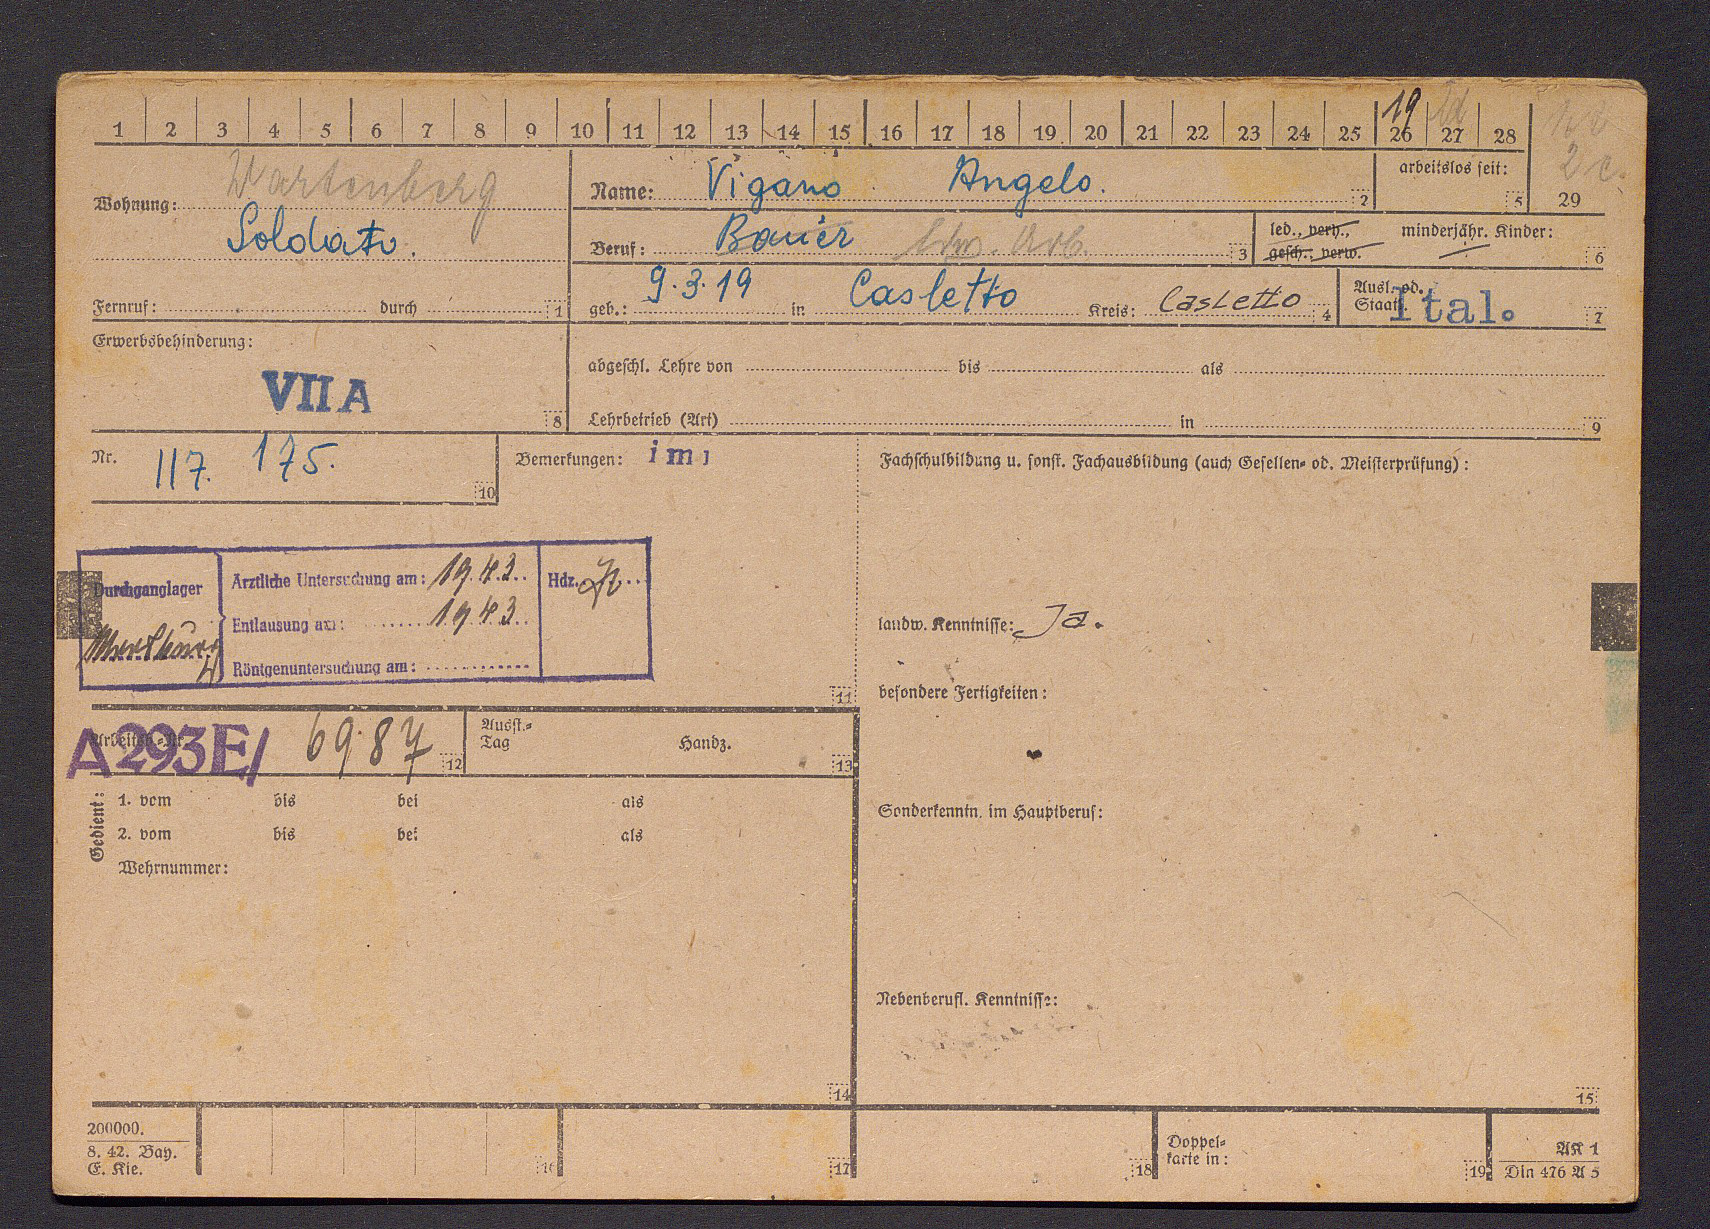 1 2 3 4 5 6 7 8 9 10 11 12 13 14 15 16 17 18 19 20 21 22 23 24 25 26 27 28 29
19
2 c.
Wohnung: Wartenberg
Soldato.
Fernruf: durch 1
Name: Vigano Angelo. 2
arbeitslos seit: 5
Beruf: Bauer ldw. Arb. 3
led., verh., gesch., verw. minderjähr. Kinder: 6
geb.: 9.3.19 in Casletto Kreis: Casletto 4
Ausl. od. Staat: Ital. 7
Erwerbsbehinderung:
VII A 8
abgeschl. Lehre von bis als
Lehrbetrieb (Art) in 9
Nr. 117. 175. 10
Bemerkungen: imi
Fachschulbildung u. sonst. Fachausbildung (auch Gesellen- od. Meisterprüfung):
Durchganglager
Ärztliche Untersuchung am: 19.43. Hdz.
Entlausung am: 1943.
Röntgenuntersuchung am:
11
landw. Kenntnisse: Ja.
besondere Fertigkeiten:
Arbeitsb.-Nr. A293E/ 69.87 12
Ausst.-Tag Handz. 13
Gedient: 1. vom bis bei als
2. vom bis bei als
Wehrnummer:
14
Sonderkenntn. im Hauptberuf:
Nebenberufl. Kenntnisse:
15
200000.
8. 42. Bay.
E. Kie.
16 17 18
Doppel-
karte in: 19
AK 1
Din 476 A 5